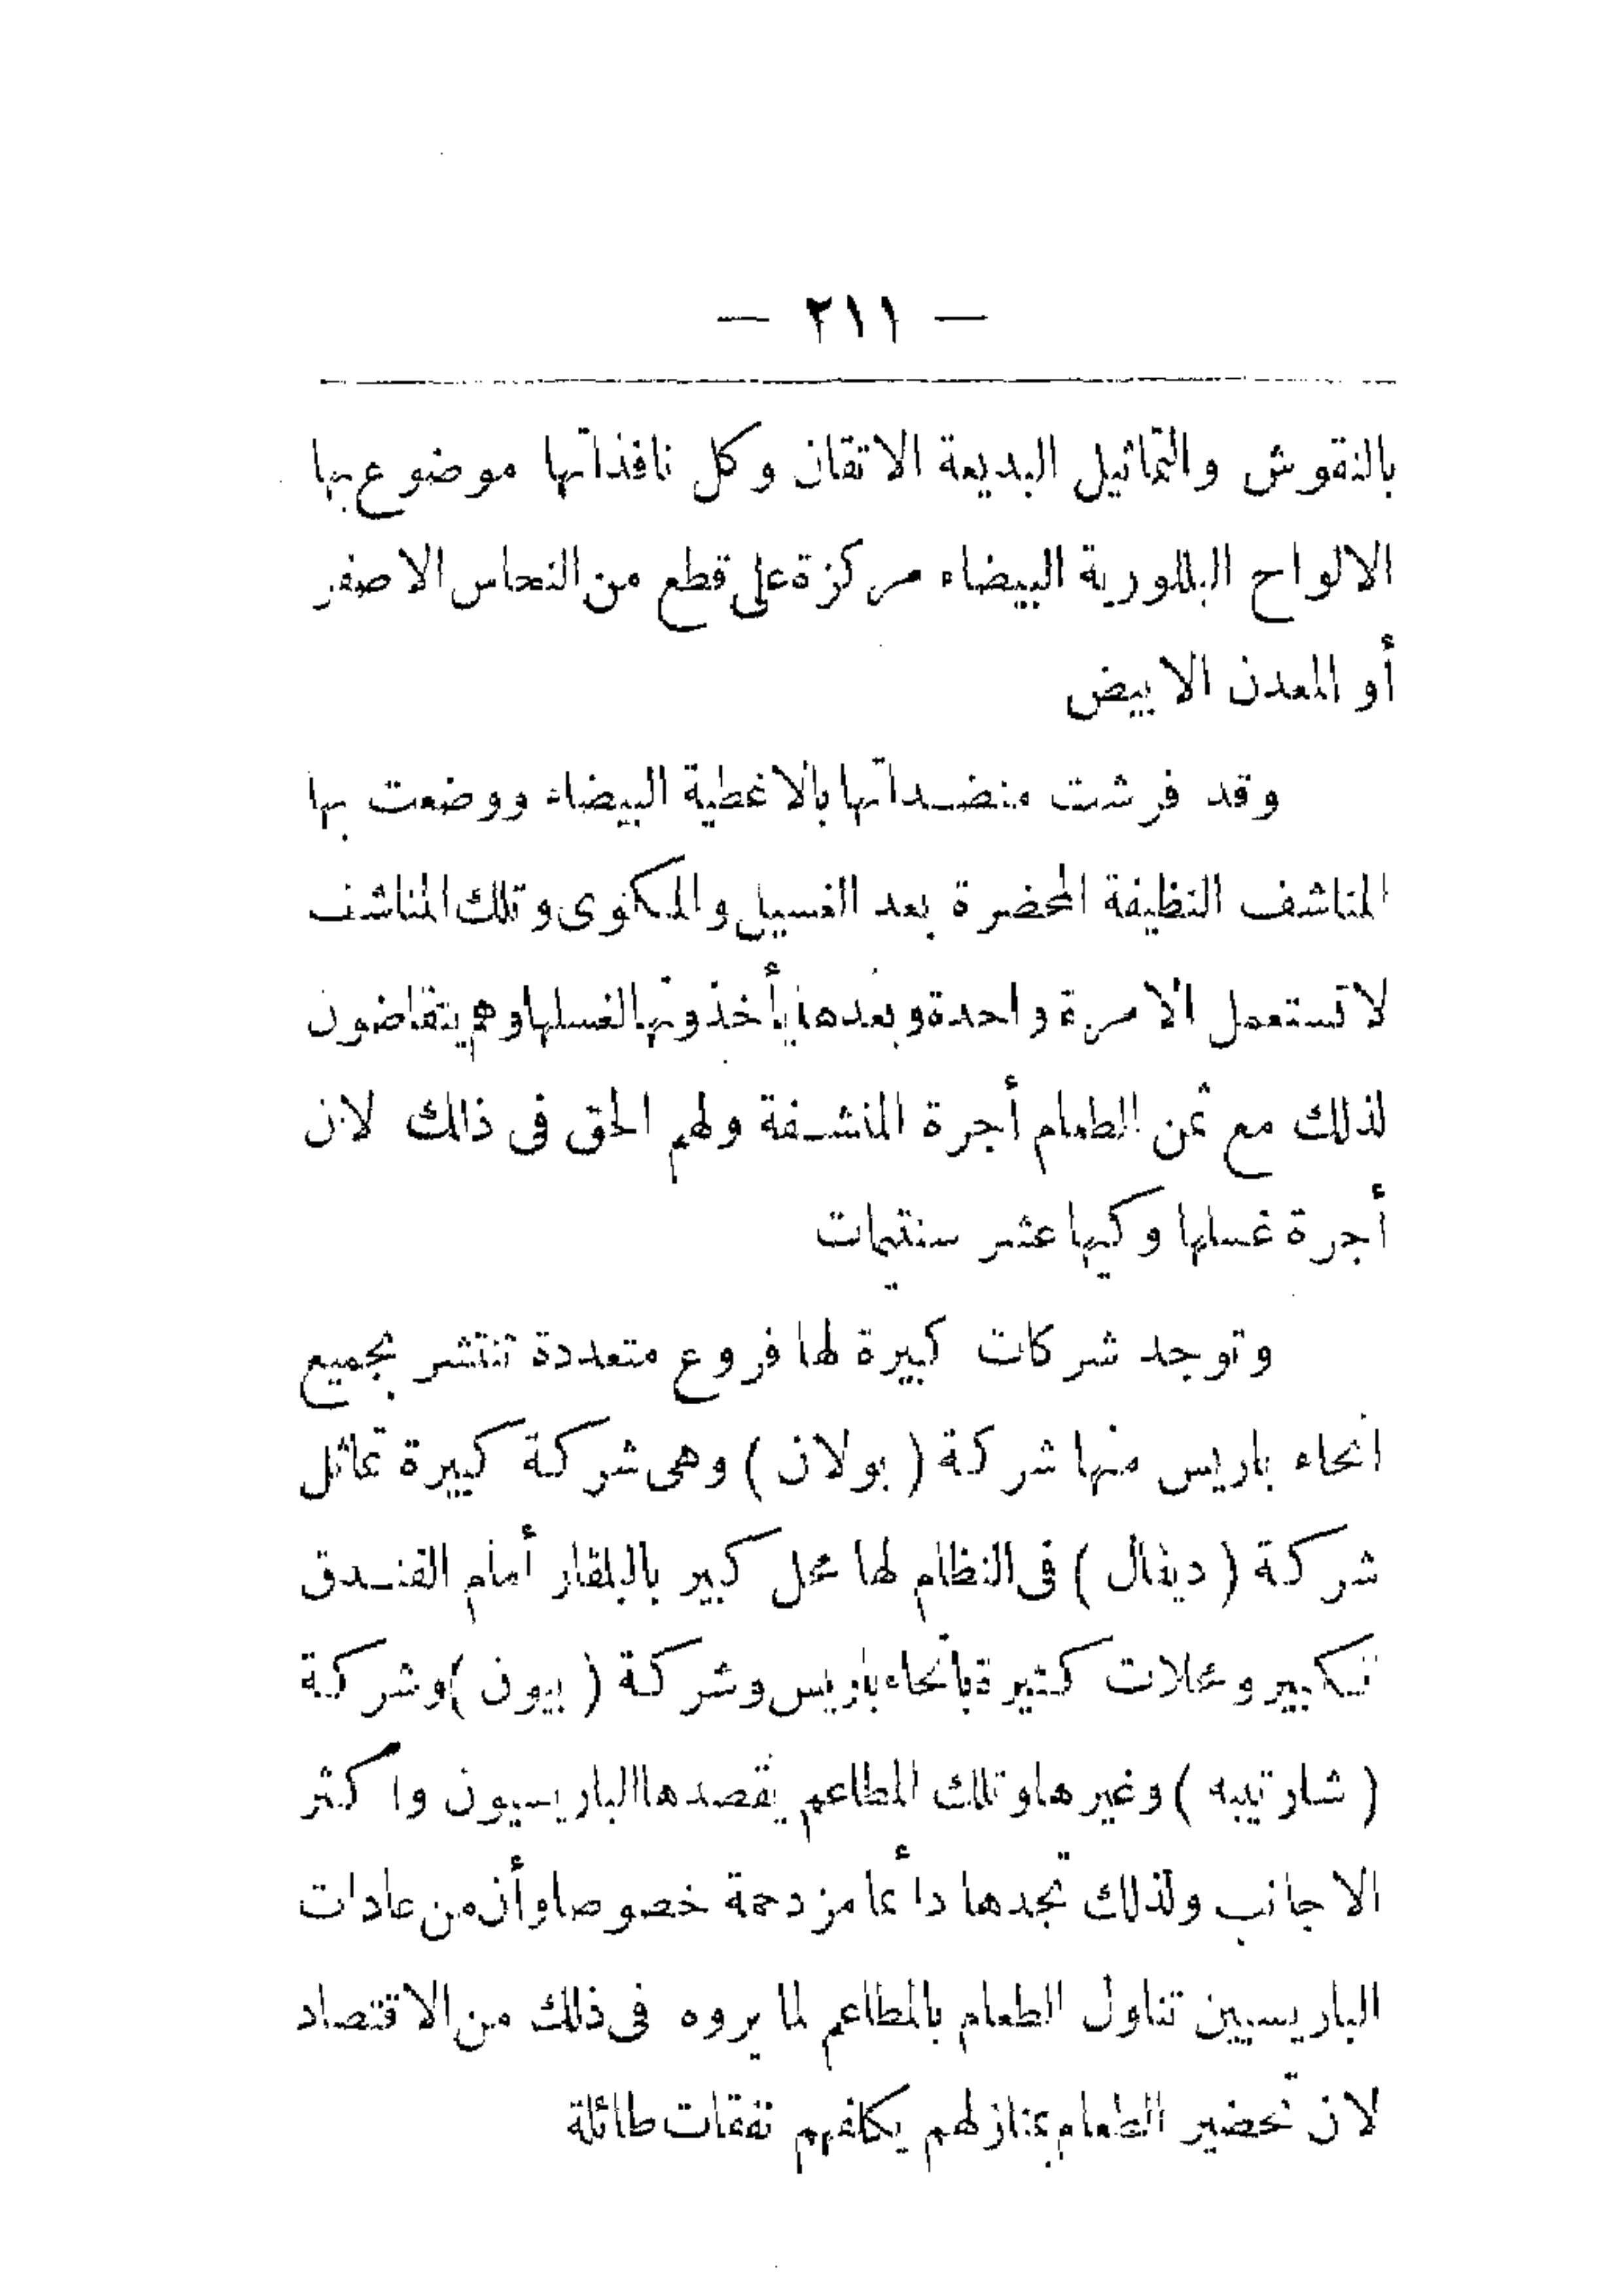 — ٢١١ —
بالنقوش والتماثيل البديعة الاتقان وكل نافذاتها موضوع بها
الالواح البللورية البيضاء مركزة على قطع من النحاس الاصفر
أو المعدن الابيض
وقد فرشت منضداتها بالاغطية البيضاء ووضعت بها
المناشف النظيفة المحضرة بعد الغسيل والمكوى وتلك المناشف
لا تستعمل الا مرة واحدة وبعدها يأخذونها لغسلها وهم يتقاضون
لذلك مع ثمن الطعام أجرة المنشفة ولهم الحق فى ذلك لان
أجرة غسلها وكيها عشر سنتيمات
وتوجد شركات كبيرة لها فروع متعددة تنتشر بجميع
انحاء باريس منها شركة ( بولان ) وهى شركة كبيرة تماثل
شركة ( ديفال ) فى النظام لها محل كبير بالبلقار أمام الفندق
تكبير ومحلات كثيرة بانحاء باريس وشركة ( بيون ) وشركة
( شارتييه ) وغيرها وتلك المطاعم يقصدها الباريسيون واكثر
الاجانب ولذلك تجدها دائما مزدحمة خصوصا وأن من عادات
الباريسيين تناول الطعام بالمطاعم لما يروه فى ذلك من الاقتصاد
لان تحضير الطعام بمنازلهم يكلفهم نفقات طائلة